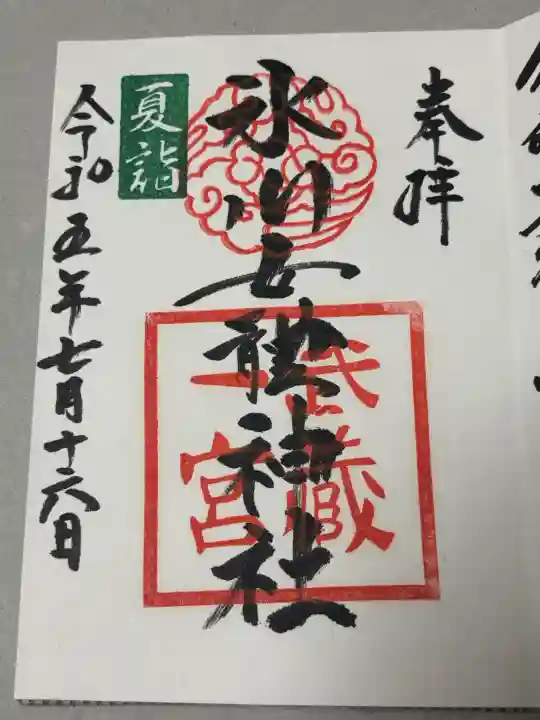 奉拝
氷川女體神社
武蔵
一宮
夏詣
令和五年七月十六日